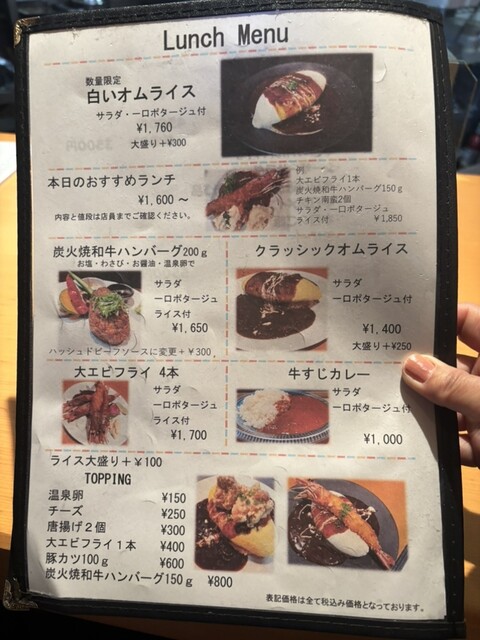 Lunch Menu
数量限定
白いオムライス
サラダ・一口ポタージュ付
¥1,760
大盛り＋¥300
本日のおすすめランチ
¥1,600 ～
内容と値段は店員までご確認ください。
例
大エビフライ1本
炭火焼和牛ハンバーグ150g
チキン南蛮2個
サラダ・一口ポタージュ
ライス付 ¥1,850
炭火焼和牛ハンバーグ200g
お塩・わさび・お醤油・温泉卵で
サラダ
一口ポタージュ
ライス付
¥1,650
ハッシュドビーフソースに変更＋¥300
クラッシックオムライス
サラダ
一口ポタージュ付
¥1,400
大盛り＋¥250
大エビフライ 4本
サラダ
一口ポタージュ
ライス付
¥1,700
牛すじカレー
サラダ
一口ポタージュ付
¥1,000
ライス大盛り＋¥100
TOPPING
温泉卵 ¥150
チーズ ¥250
唐揚げ２個 ¥300
大エビフライ１本 ¥400
豚カツ100g ¥600
炭火焼和牛ハンバーグ150g ¥800
表記価格は全て税込み価格となっております。